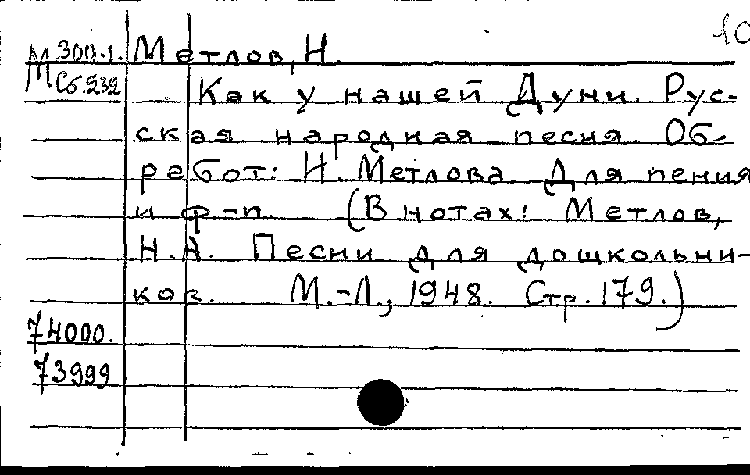 10
М 300.1. Метлов, Н.
М Сб.232 Как у нашей Дуни. Рус-
ская народная песня Об-
работ: Н. Метлова Для пения
и ф-п. (В нотах: Метлов,
Н.А. Песни для дошкольни-
ков. М.-Л., 1948. Стр. 179.)
74000.
73999